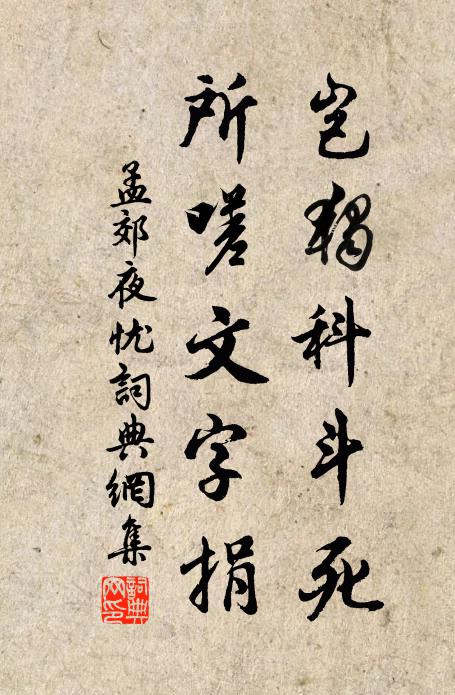 豈獨科斗死
所嗟文字捐
孟郊夜忧詞典網集
詞典網印